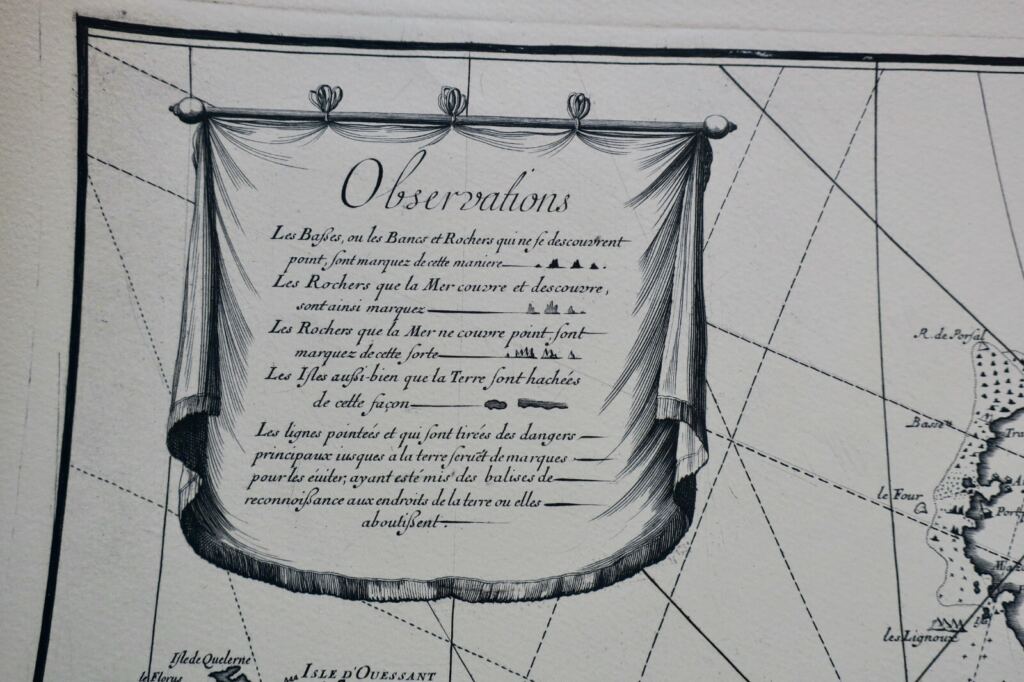 Observations
Les Baſses, ou les Bancs et Rochers qui ne ſe descouvrent
point, ſont marquez de cette maniere
Les Rochers que la Mer couvre et descouvre,
sont ainsi marquez
Les Rochers que la Mer ne couvre point, ſont
marquez de cette ſorte
Les Iſles auſsi-bien que la Terre ſont hachées
de cette façon
Les lignes pointeés et qui ſont tirées des dangers
principaux iusques a la terre ſeruẽt de marques
pour les éuiter, ayant esté mis des balises de
reconnoiſsance aux endroits de la terre ou elles
aboutiſsent.
R. de Porsal
Basse
le Four
Port
les Lignoux
Iſle de Quelerne
le Florus
ISLE D'OUESSANT